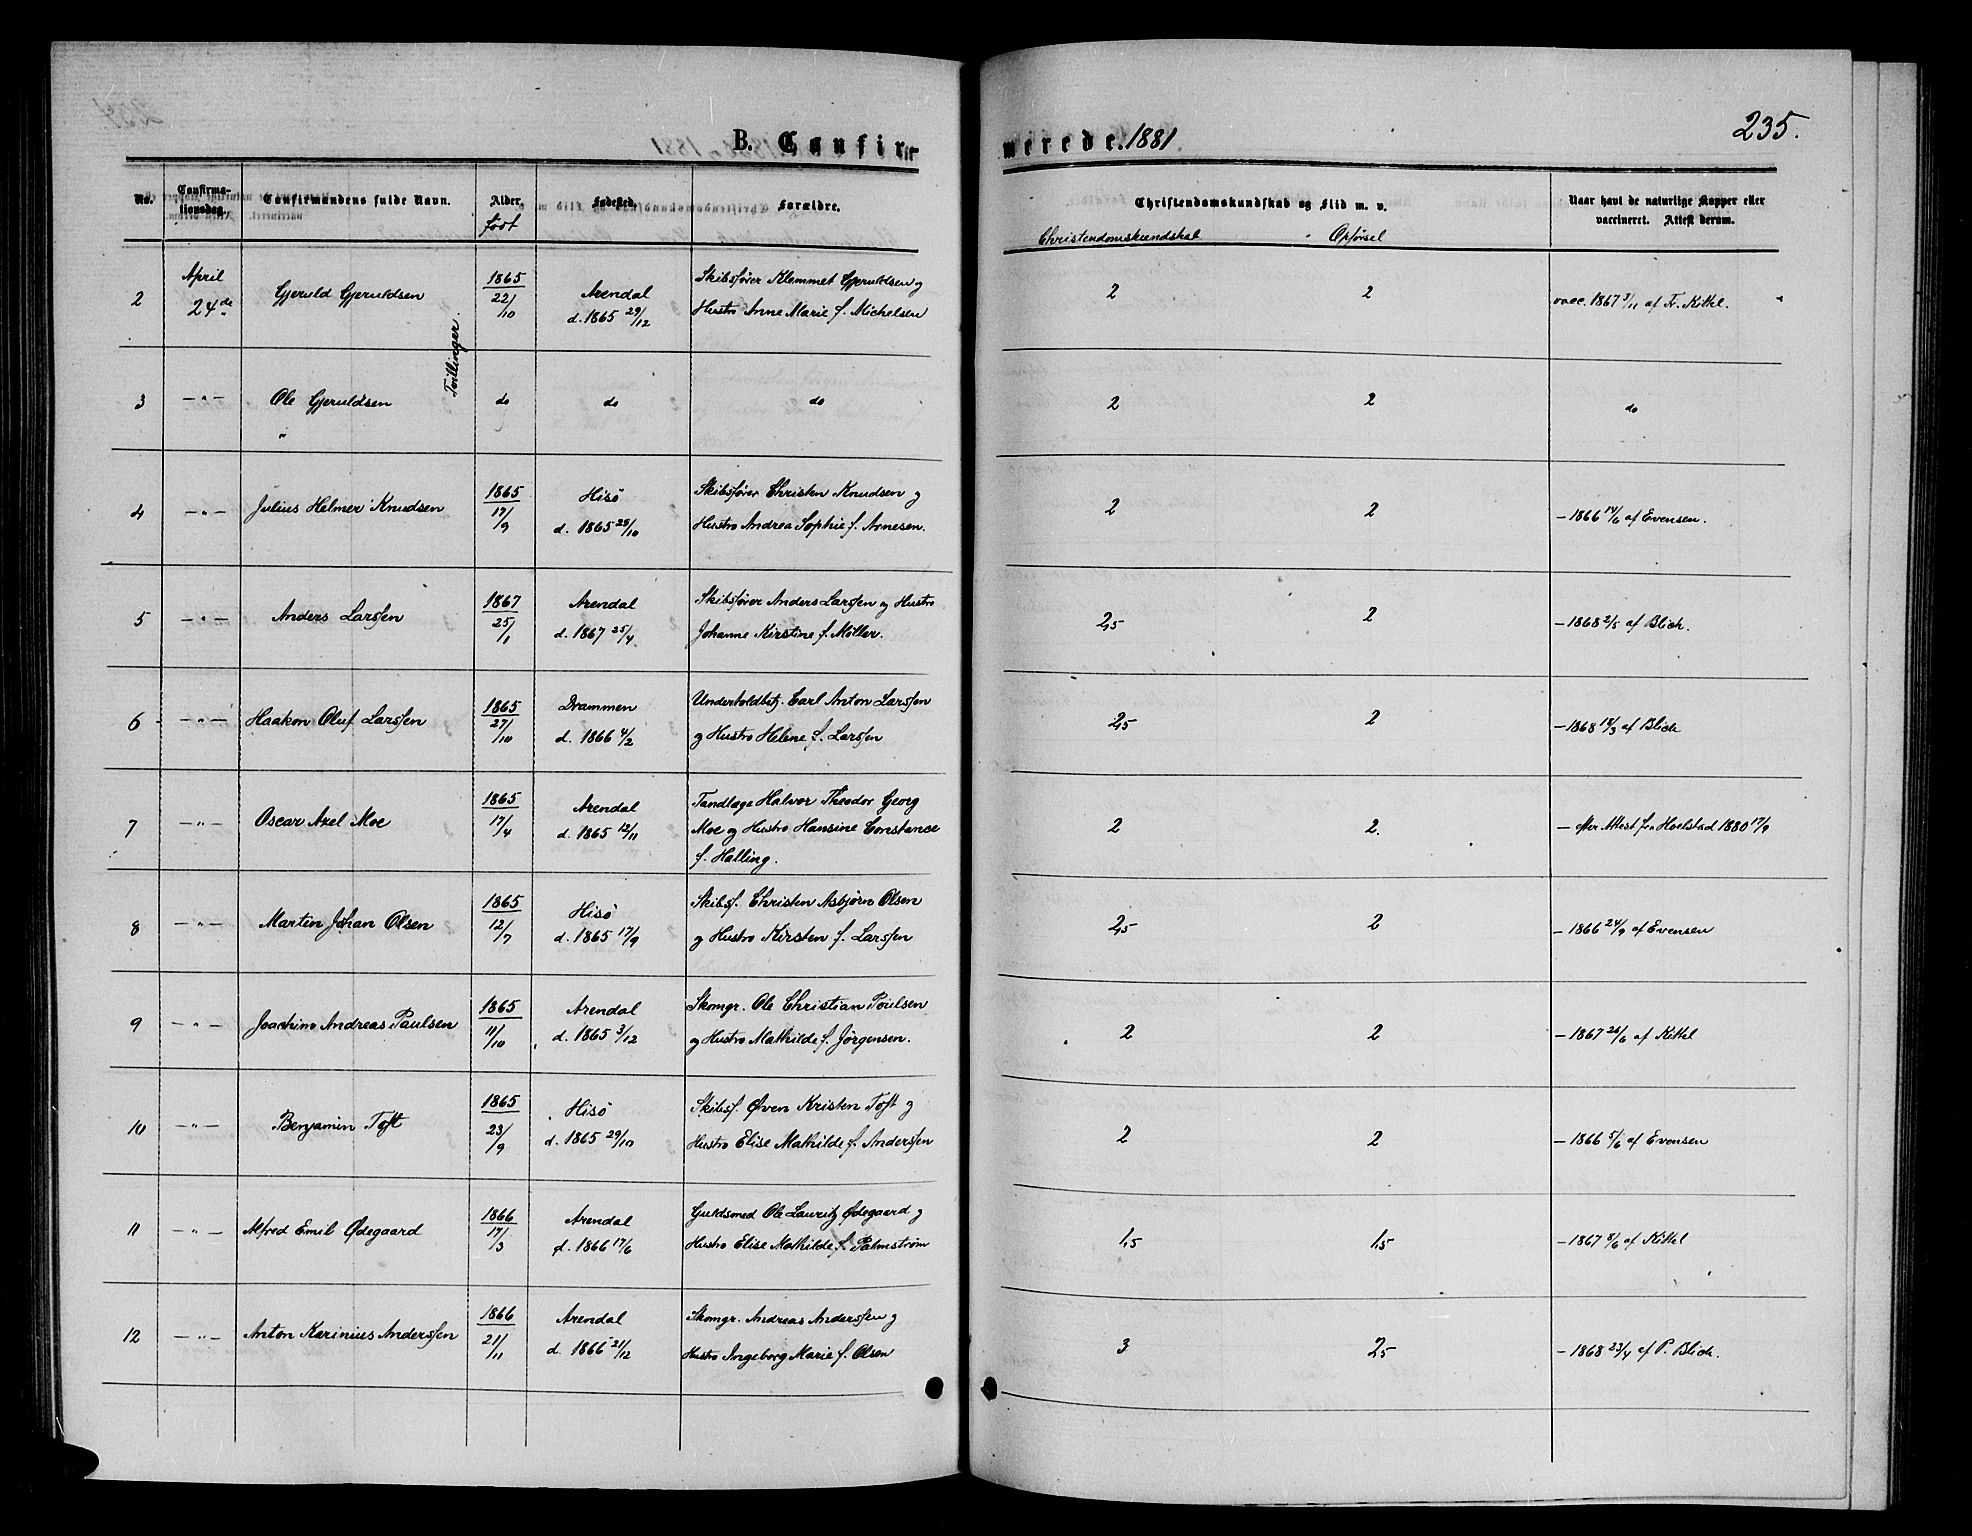 235.
B. Confirmerede. 1881
No. Confirmationsdag. Confirmandens fulde Navn. Alder. født Fødested. Forældre. Christendomskundskab og Flid m. v. Naar havt de naturlige Kopper eller vaccineret. Attest derom.
Christendomskundskab Opførsel
2 April 24de Gjeruld Gjeruldsen 1865 22/10 Arendal d. 1865 29/12 Skibsfører Klemmet Gjeruldsen og
Hustro Anne Marie f. Michelsen 2 2 vacc. 1867 3/11 af Fr. Kittel.
Tvillinger.
3 —"— Ole Gjeruldsen do do do 2 2 do
4 —"— Julius Helmer Knudsen 1865 17/9 Hisö d. 1865 25/10 Skibsfører Christen Knudsen og
Hustro Andrea Sophie f. Arnesen. 2 2 — 1866 14/6 af Evensen.
5 —"— Anders Larssen 1867 25/1 Arendal d. 1867 25/4 Skibsfører Anders Larssen og Hustro
Johanne Kirstine f. Møller. 2,5 2 — 1868 2/5 af Blich.
6 —"— Haakon Oluf Larssen 1865 27/10 Drammen d. 1866 4/2 Undertoldbtj. Carl Anton Larssen
og Hustro Helene f. Larssen 2,5 2 — 1868 18/3 af Blich
7 —"— Oscar Axel Moe 1865 17/4 Arendal d. 1865 12/11 Tandlæge Halvor Theodor Georg
Moe og Hustro Hansine Constance
f. Halling. 2 2. — efter Attest fra Hoelstad 1880 17/9
8 —"— Martin Johan Olsen 1865 12/7 Hisö d. 1865 17/9 Skibsf. Christen Asbjørn Olsen
og Hustro Kirsten f. Larssen 2,5 2 — 1866 24/9 af Evensen
9 —"— Joachim Andreas Paulsen 1865 11/10 Arendal d. 1865 3/12 Skomgr. Ole Christian Poulsen
og Hustro Mathilde f. Jørgensen. 2 2 — 1867 26/6 af Kittel
10 —"— Benjamin Toft 1865 23/9 Hisö d. 1865 29/10 Skibsf. Øven Kristen Toft og
Hustro Elise Mathilde f. Anderssen 2 2 — 1866 5/6 af Evensen
11 —"— Alfred Emil Ødegaard 1866 17/3 Arendal d. 1866 17/6 Guldsmed Ole Lauritz Ødegaard og
Hustro Elise Mathilde f. Palmstrøm 1,5 1,5 — 1867 8/6 af Kittel
12 —"— Anton Karinius Anderssen 1866 21/11 Arendal d. 1866 21/12 Skomgr. Andreas Anderssen og
Hustro Ingeborg Marie f. Olsen 3 2,5 — 1868 23/4 af P. Blich.